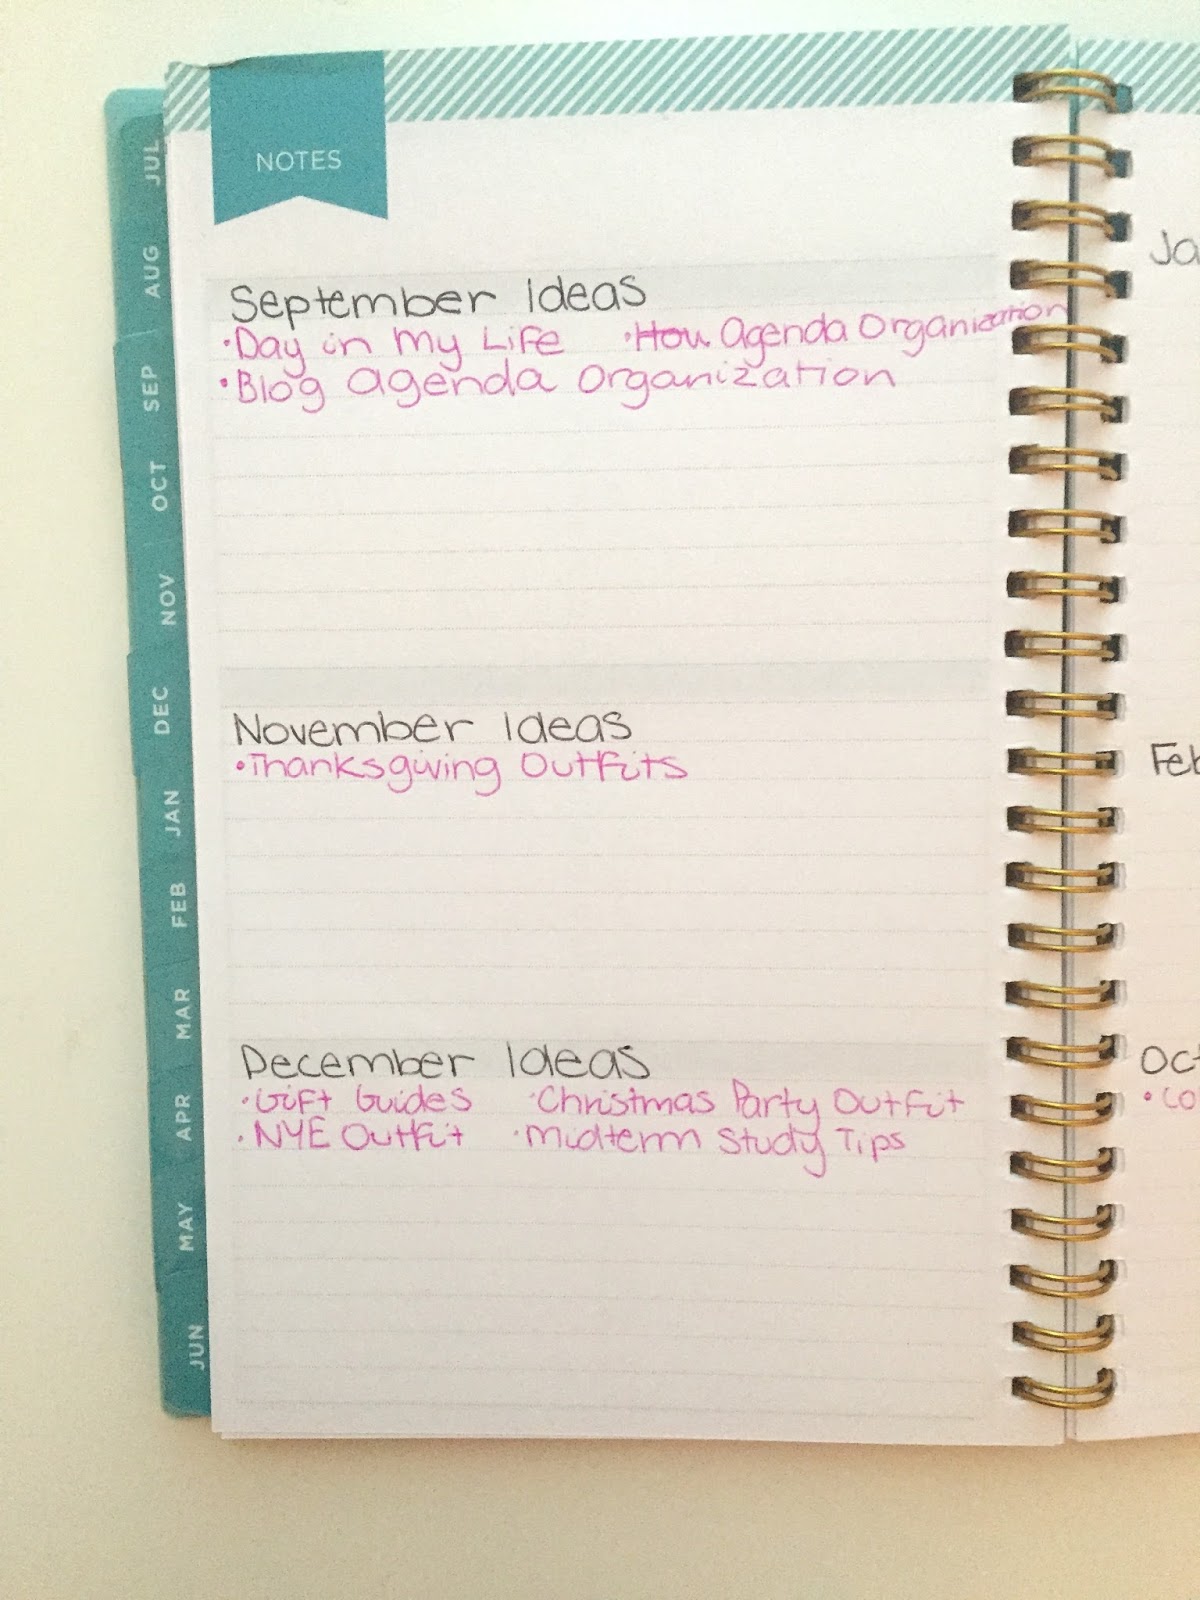 NOTES
JUL
AUG
SEP
OCT
NOV
DEC
JAN
FEB
MAR
APR
MAY
JUN
September Ideas
•Day in My Life •How Agenda Organization
•Blog agenda Organization
November Ideas
•Thanksgiving Outfits
December Ideas
•Gift Guides •Christmas Party Outfit
•NYE Outfit •Midterm Study Tips
Ja
Feb
Oct
•Co